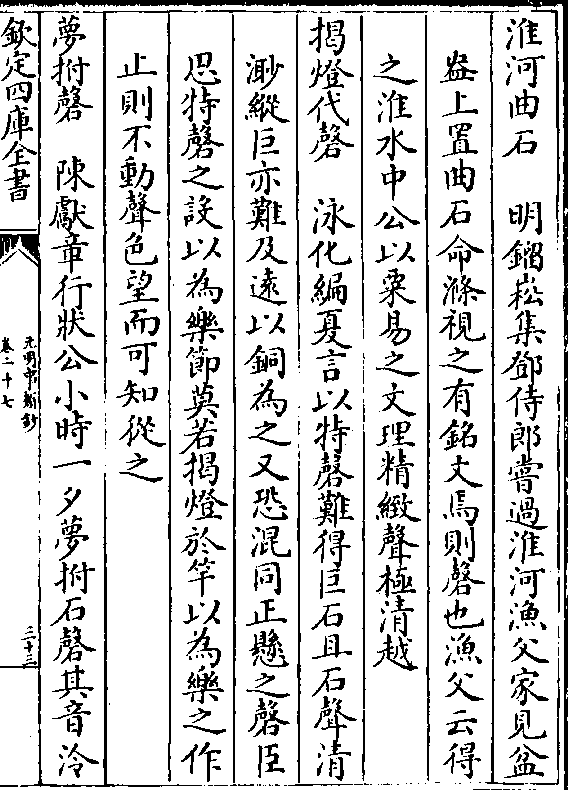 淮河曲石　明鎦崧集鄧侍郎嘗過淮河漁父家見盆
盎上置曲石命滌視之有銘文焉則磬也漁父云得
之淮水中公以粟易之文理精緻聲極清越
揭燈代磬　泳化編夏言以特磬難得巨石且石聲清
渺縱巨亦難及遠以銅為之又恐混同正懸之磬臣
思特磬之設以為樂節莫若揭燈於竿以為樂之作
止則不動聲色望而可知從之
夢拊磬　陳獻章行狀公小時一夕夢拊石磬其音泠
欽定四庫全書
元明事類鈔
卷二十七
三十三